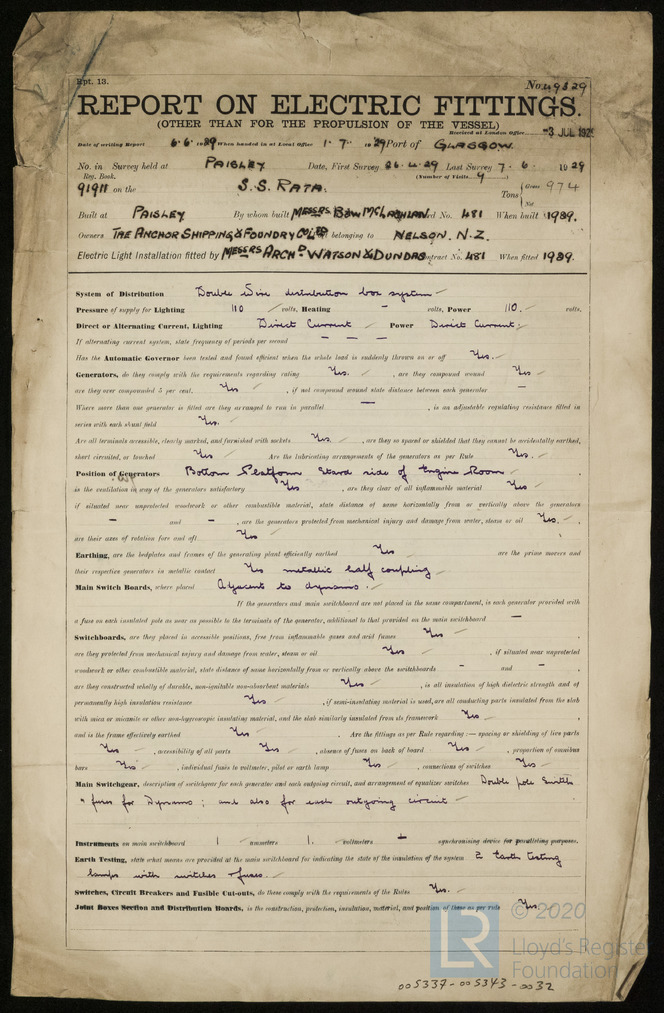 Rpt. 13.
No. 49329
REPORT ON ELECTRIC FITTINGS.
(OTHER THAN FOR THE PROPULSION OF THE VESSEL)
Received at London Office -3 JUL 1929
Date of writing Report 6.6.1929 When handed in at Local Office 1.7.1929 Port of GLASGOW.
No. in Survey held at PAISLEY Date, First Survey 26.4.29 Last Survey 7.6.1929
Reg. Book. (Number of Visits 9)
91911 on the S.S. RATA. Tons { Gross 974
Net
Built at PAISLEY By whom built MESSRS BOW McLACHLAN. Yard No. 481 When built 1929.
Owners THE ANCHOR SHIPPING & FOUNDRY CO LTD belonging to NELSON. N.Z.
Electric Light Installation fitted by MESSRS ARCHD WATSON & DUNDAS Contract No. 481 When fitted 1929.
System of Distribution Double Wire distribution box system
Pressure of supply for Lighting 110 volts, Heating - volts, Power 110. volts.
Direct or Alternating Current, Lighting Direct Current Power Direct Current.
If alternating current system, state frequency of periods per second - - -
Has the Automatic Governor been tested and found efficient when the whole load is suddenly thrown on or off Yes.
Generators, do they comply with the requirements regarding rating Yes. , are they compound wound Yes
are they over compounded 5 per cent. Yes , if not compound wound state distance between each generator -
Where more than one generator is fitted are they arranged to run in parallel - , is an adjustable regulating resistance fitted in
series with each shunt field Yes.
Are all terminals accessible, clearly marked, and furnished with sockets Yes. , are they so spaced or shielded that they cannot be accidentally earthed,
short circuited, or touched Yes Are the lubricating arrangements of the generators as per Rule Yes.
Position of Generators Bottom Platform Starbd side of Engine Room
is the ventilation in way of the generators satisfactory Yes , are they clear of all inflammable material Yes
if situated near unprotected woodwork or other combustible material, state distance of same horizontally from or vertically above the generators
- and - , are the generators protected from mechanical injury and damage from water, steam or oil Yes.
are their axes of rotation fore and aft Yes
Earthing, are the bedplates and frames of the generating plant efficiently earthed Yes are the prime movers and
their respective generators in metallic contact Yes metallic half coupling
Main Switch Boards, where placed Adjacent to dynamo.
If the generators and main switchboard are not placed in the same compartment, is each generator provided with
a fuse on each insulated pole as near as possible to the terminals of the generator, additional to that provided on the main switchboard -
Switchboards, are they placed in accessible positions, free from inflammable gases and acid fumes Yes
are they protected from mechanical injury and damage from water, steam or oil Yes , if situated near unprotected
woodwork or other combustible material, state distance of same horizontally from or vertically above the switchboards - and -
are they constructed wholly of durable, non-ignitable non-absorbent materials Yes , is all insulation of high dielectric strength and of
permanently high insulation resistance Yes , if semi-insulating material is used, are all conducting parts insulated from the slab
with mica or micanite or other non-hygroscopic insulating material, and the slab similarly insulated from its framework Yes
and is the frame effectively earthed Yes Are the fittings as per Rule regarding :— spacing or shielding of live parts
Yes , accessibility of all parts Yes , absence of fuses on back of board Yes , proportion of omnibus
bars Yes , individual fuses to voltmeter, pilot or earth lamp Yes , connections of switches Yes
Main Switchgear, description of switchgear for each generator and each outgoing circuit, and arrangement of equalizer switches Double pole Switch
& fuses for Dynamo ; and also for each outgoing circuit
Instruments on main switchboard 1 ammeters 1. voltmeters - synchronising device for paralleling purposes.
Earth Testing, state what means are provided at the main switchboard for indicating the state of the insulation of the system 2 Earth testing
lamps with switches & fuses.
Switches, Circuit Breakers and Fusible Cut-outs, do these comply with the requirements of the Rules Yes.
Joint Boxes Section and Distribution Boards, is the construction, protection, insulation, material, and position of these as per rule Yes.
© 2020
LR
Lloyd's Register
Foundation
005337-005343-0032